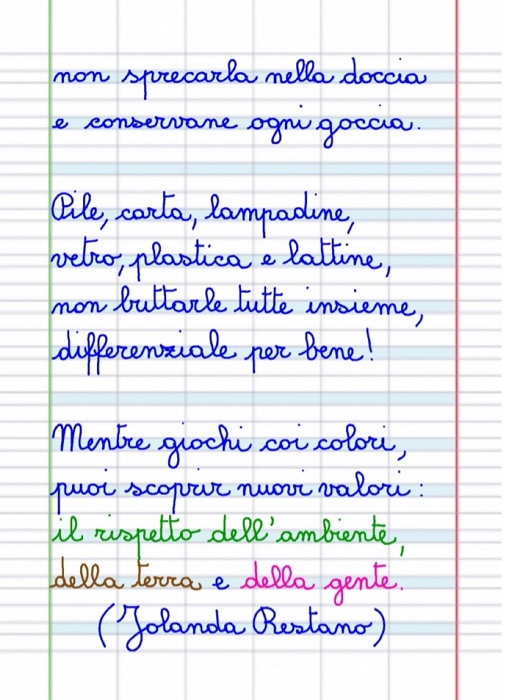 non sprecarla nella doccia
e conservane ogni goccia.
Pile, carta, lampadine,
vetro, plastica e lattine,
non buttarle tutte insieme,
differenziale per bene!
Mentre giochi coi colori,
puoi scoprir nuovi valori:
il rispetto dell'ambiente,
della terra e della gente.
(Jolanda Restano)